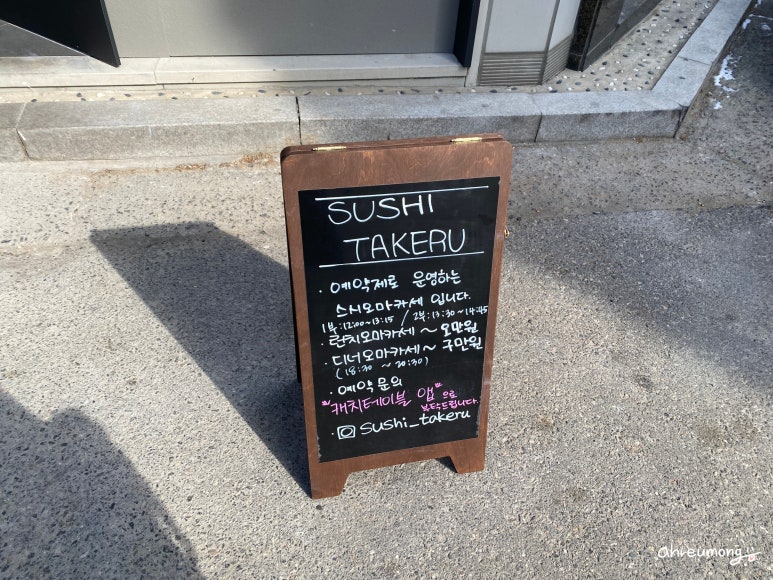 SUSHI
TAKERU
· 예약제로 운영하는
스시오마카세 입니다.
1부:12:00~13:15 / 2부:13:30~14:45
· 런치오마카세 ~ 오만원
· 디너오마카세 ~ 구만원
(18:30 ~ 20:30)
· 예약문의
"캐치테이블 앱"으로
부탁드립니다.
· sushi_takeru
ahreumong